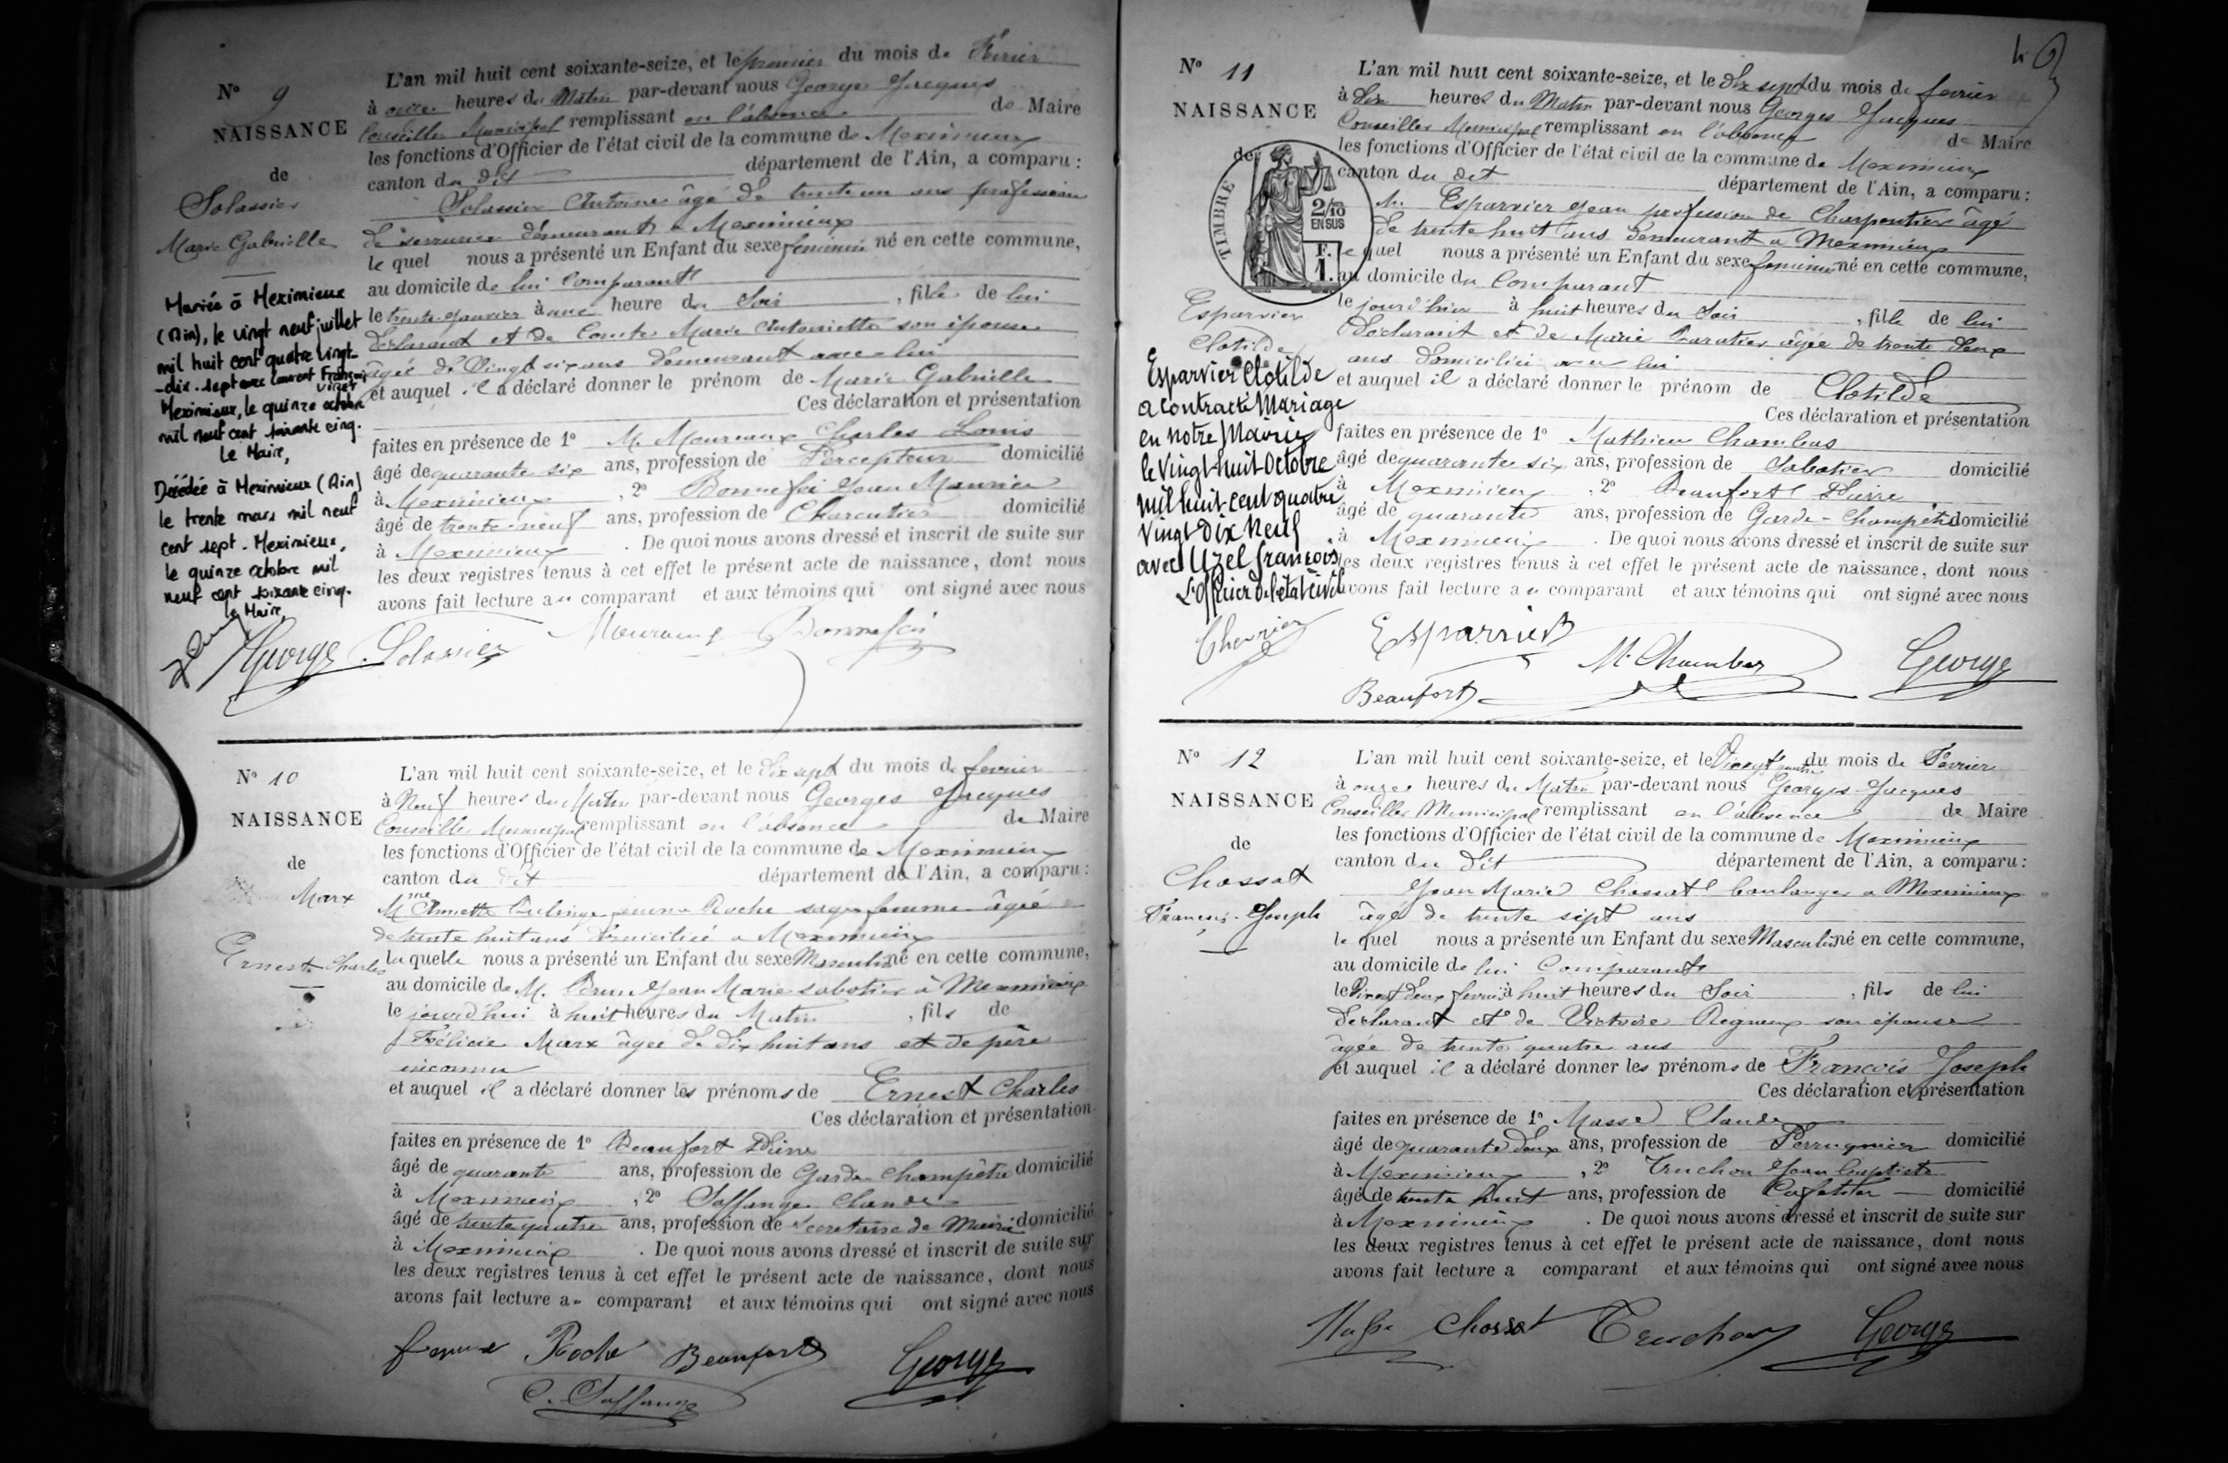 N° 9
NAISSANCE
de
Solassier
Marie Gabrielle
Mariée à Meximieux
(Ain), le vingt neuf juillet
mil huit cent quatre vingt-
-dix-sept avec Laurent François
Meximieux, le quinze octobre
mil neuf cent soixante cinq.
Le Maire,
Décédée à Meximieux (Ain)
le trente mars mil neuf
cent sept. Meximieux,
le quinze octobre mil
neuf cent soixante cinq.
le Maire,
L'an mil huit cent soixante-seize, et le premier du mois de Février
à onze heures du Matin par-devant nous Georges Jacques
Conseiller Municipal remplissant en l'absence de Maire
les fonctions d'Officier de l'état civil de la commune de Meximieux
canton du dit département de l'Ain, a comparu :
Solassier Antoine âgé de trente un ans profession
de serrurier demeurant à Meximieux
le quel nous a présenté un Enfant du sexe féminin né en cette commune,
au domicile de lui Comparant
le trente janvier à une heure du Soir , fille de lui
déclarant et de Comte Marie Antoinette son épouse
âgée de Vingt six ans demeurant avec lui
et auquel il a déclaré donner le prénom de Marie Gabrielle
Ces déclaration et présentation
faites en présence de 1° M. Moureaux Charles Louis
âgé de quarante six ans, profession de Percepteur domicilié
à Meximieux , 2° Bonnefoi Jean Maurice
âgé de trente-neuf ans, profession de Charcutier domicilié
à Meximieux . De quoi nous avons dressé et inscrit de suite sur
les deux registres tenus à cet effet le présent acte de naissance, dont nous
avons fait lecture au comparant et aux témoins qui ont signé avec nous
George Solassier Moureaux Bonnefoi
N° 10
NAISSANCE
de
Marx
Ernest Charles
L'an mil huit cent soixante-seize, et le dix sept du mois de février
à Neuf heures du Matin par-devant nous Georges Jacques
Conseiller Municipal remplissant en l'absence de Maire
les fonctions d'Officier de l'état civil de la commune de Meximieux
canton du dit département de l'Ain, a comparu :
Mme Annette femme Roche sage femme âgée
de trente huit ans domiciliée a Meximieux
la quelle nous a présenté un Enfant du sexe Masculin né en cette commune,
au domicile de M. Brun Jean Marie sabotier à Meximieux
le jourd'hui à huit heures du Matin , fils de
Félicie Marx âgée de dix huit ans et de père
inconnu
et auquel il a déclaré donner les prénoms de Ernest Charles
Ces déclaration et présentation
faites en présence de 1° Beaufort Pierre
âgé de quarante ans, profession de Garde Champêtre domicilié
à Meximieux , 2° Saffange Claude
âgé de trente quatre ans, profession de Secrétaire de Mairie domicilié
à Meximieux . De quoi nous avons dressé et inscrit de suite sur
les deux registres tenus à cet effet le présent acte de naissance, dont nous
avons fait lecture au comparant et aux témoins qui ont signé avec nous
femme Roche Beaufort George
C. Saffange
N° 11
NAISSANCE
de
TIMBRE
2/10
EN SUS
F.
1.
Esparvier
Clotilde
Esparvier Clotilde
a contracté Mariage
en notre Mairie
le Vingt huit Octobre
mil huit cent quatre
Vingt Dix Neuf
avec Uzel François
L'officier de l'état civil
Chevrier
L'an mil huit cent soixante-seize, et le dix sept du mois de février
à dix heures du Matin par-devant nous Georges Jacques
Conseiller Municipal remplissant en l'absence de Maire
les fonctions d'Officier de l'état civil de la commune de Meximieux
canton du dit département de l'Ain, a comparu :
M. Esparvier Jean profession de Charpentier âgé
de trente huit ans demeurant a Meximieux
le quel nous a présenté un Enfant du sexe féminin né en cette commune,
au domicile du Comparant
le jourd'hier à huit heures du Soir , fille de lui
Déclarant et de Marie âgée de trente deux
ans domiciliée avec lui
et auquel il a déclaré donner le prénom de Clotilde
Ces déclaration et présentation
faites en présence de 1° Mathieu Chambas
âgé de quarante six ans, profession de Sabotier domicilié
à Meximieux , 2° Beaufort Pierre
âgé de quarante ans, profession de Garde-Champêtre domicilié
à Meximieux . De quoi nous avons dressé et inscrit de suite sur
les deux registres tenus à cet effet le présent acte de naissance, dont nous
avons fait lecture au comparant et aux témoins qui ont signé avec nous
Esparvier M. Chambas George
Beaufort
N° 12
NAISSANCE
de
Chossat
François-Joseph
L'an mil huit cent soixante-seize, et le Vingt quatre du mois de Février
à onze heures du Matin par-devant nous Georges Jacques
Conseiller Municipal remplissant en l'absence de Maire
les fonctions d'Officier de l'état civil de la commune de Meximieux
canton du dit département de l'Ain, a comparu :
Jean Marie Chossat boulanger a Meximieux
âgé de trente sept ans
le quel nous a présenté un Enfant du sexe Masculin né en cette commune,
au domicile de lui Comparant
le Vingt deux février à huit heures du Soir , fils de lui
déclarant et de Victoire son épouse
âgée de trente quatre ans
et auquel il a déclaré donner les prénoms de François Joseph
Ces déclaration et présentation
faites en présence de 1° Masse Claude
âgé de quarante deux ans, profession de Perruquier domicilié
à Meximieux , 2° Truchon Jean Baptiste
âgé de trente huit ans, profession de Cafetier domicilié
à Meximieux . De quoi nous avons dressé et inscrit de suite sur
les deux registres tenus à cet effet le présent acte de naissance, dont nous
avons fait lecture a comparant et aux témoins qui ont signé avec nous
Chossat Truchon George